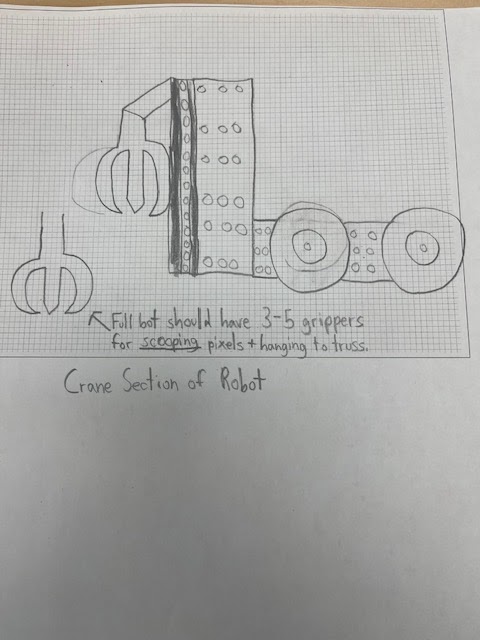 Full bot should have 3-5 grippers
for scooping pixels + hanging to truss.
Crane Section of Robot